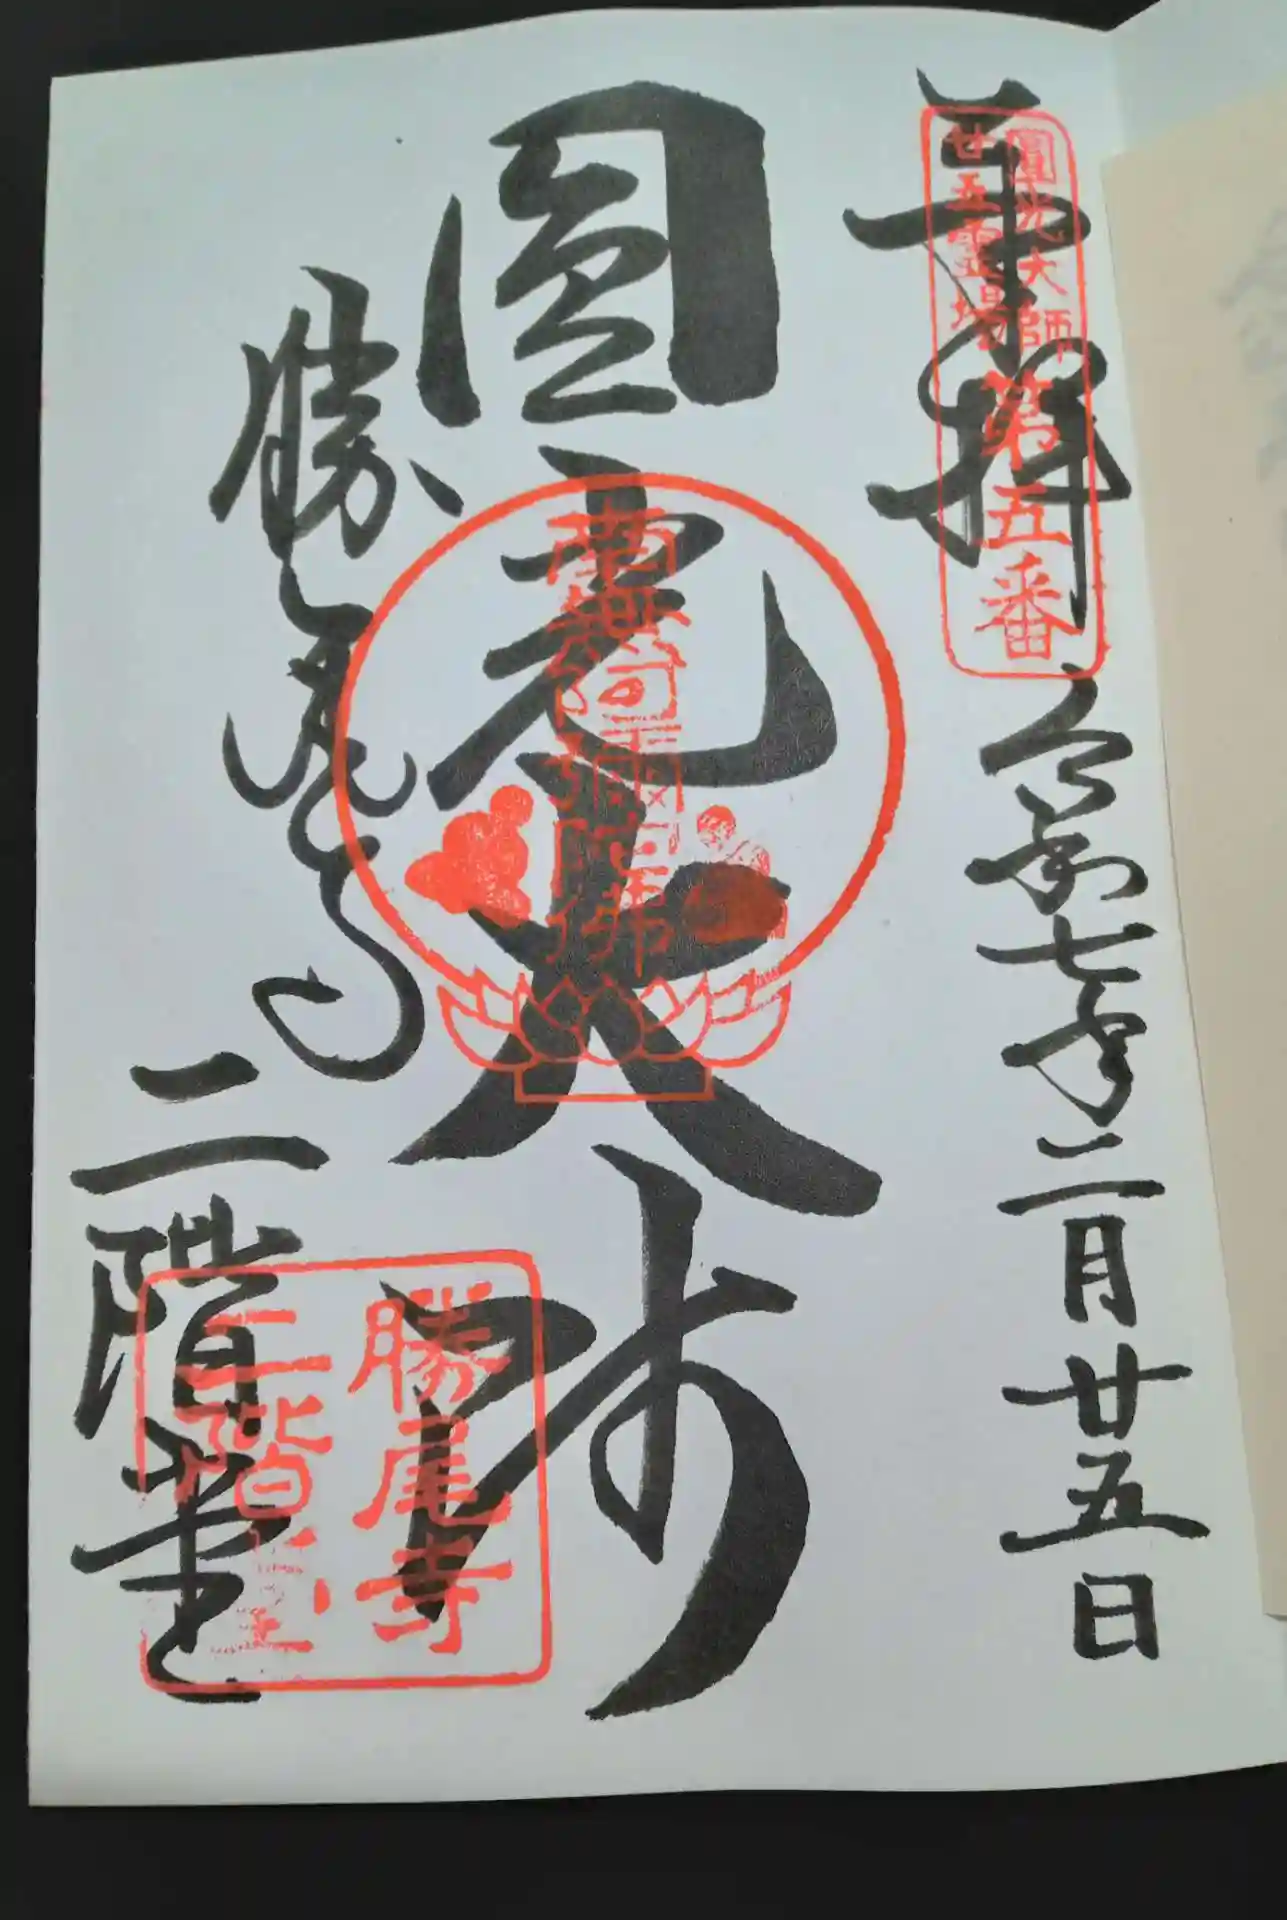 奉拝
令和七年二月廿五日
圓光大師
廿五霊場
第五番
圓光大师
南無阿弥陀佛
勝尾寺
二階堂
勝尾寺
二階堂